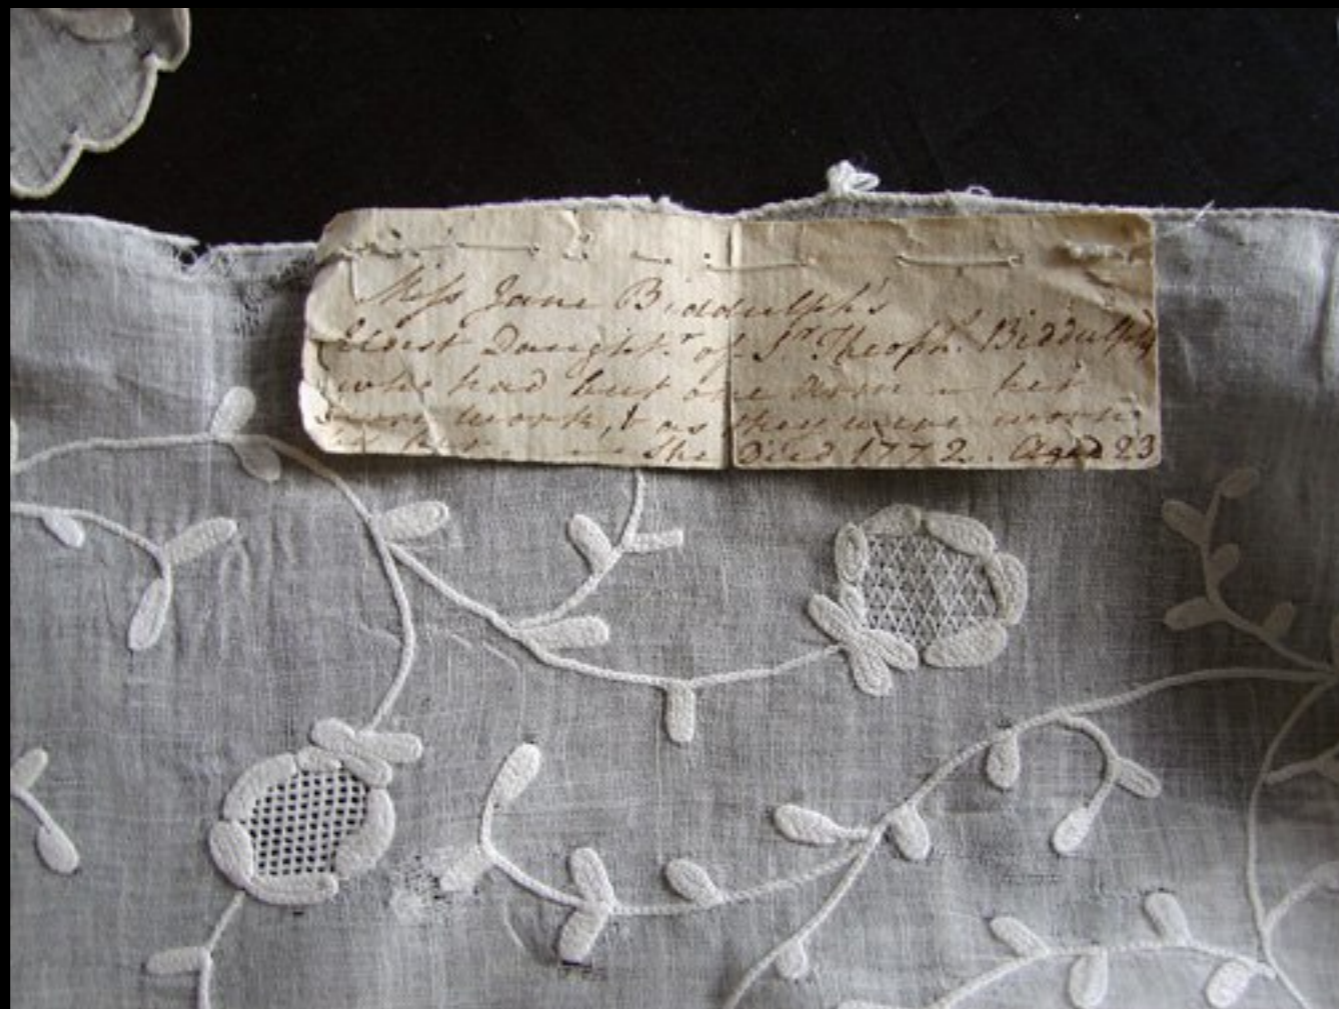 Miss Jane Biddulph's
Eldest Daught.r of Sr. Theoph.s Biddulph
who had but one arm - her
own work, & as they were worn
she Died 1772. Aged 23